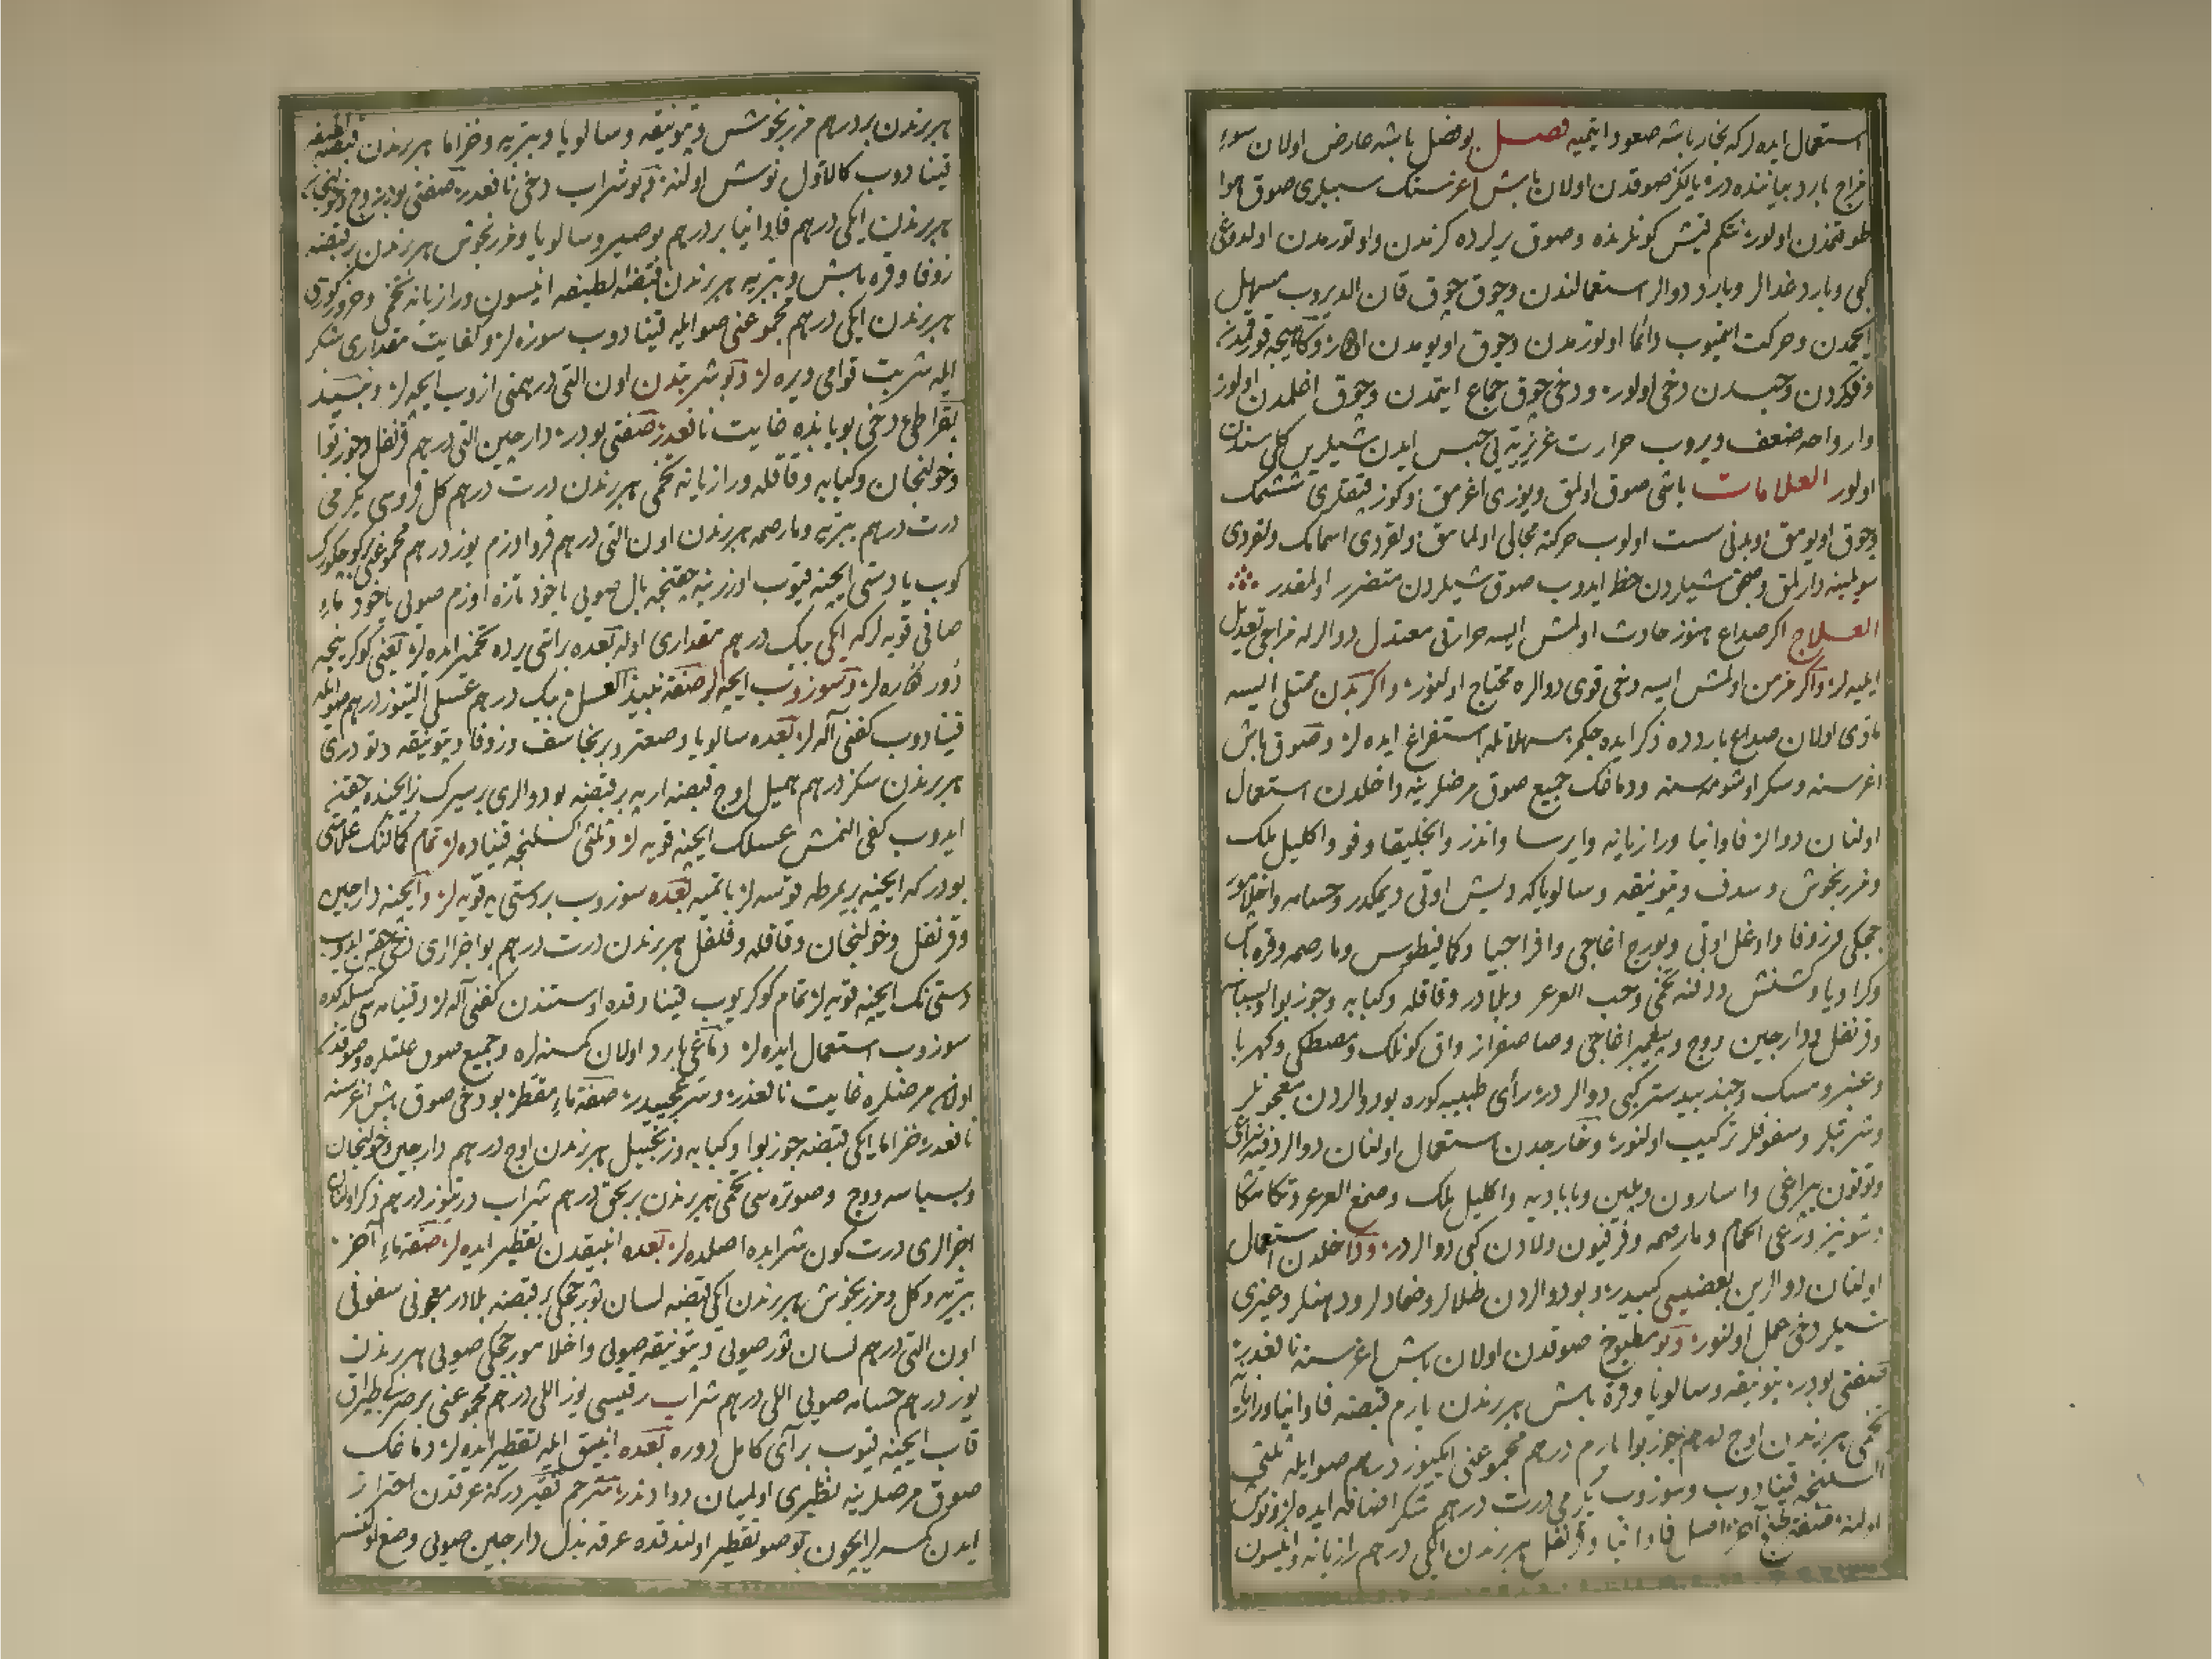 استعمال ايده لر كه بخار باشه صعود ايتميه فصل بو فصل باشه عارض اولان سوء
مزاج بارد بياننده در يالكز صوقدن اولان باش اغرسنك سببلرى صوق هوا
طوقنمدن اولور نتكم قيش كونلرنده وصوق يرلرده كزمدن واوتورمدن اولدوغى
كبى وبارد غدالر وبارد دوالر استعمالندن وچوق چوق قان الديروب مسهل
ايچمدن وحركت ايتميوب دائما اوتورمدن وچوق اويومدن
وفكردن وحبسدن دخى اولور ودخى چوق جماع ايتمدن وچوق اغلمدن اولور
وارواحه ضعف ويروب حرارت غريزيه يى حبس ايدن شيلرين كلى سندن
اولور العلامات باشى صوق اولمق ويوزى اغرمق وكوز قپقلرى ششمك
وچوق اويومق وبدنى سست اولوب حركته مجالى اولمامق ولقردى اسمامك ولقردى
سويلمينه دارلمق وصجق شيلردن حظ ايدوب صوق شيلردن متضرر اولمقدر
العلاج اكر صداع هنوز حادث اولمش ايسه حرارتى معتدل دوالر له مزاجى تعديل
ايليه لر واكر مزمن اولمش ايسه دخى قوى دوالره محتاج اولنور واكر بدن ممتلى ايسه
مادى اولان صداع بارد ده ذكر ايده جكمز مسهلاتله استفراغ ايده لر وصوق باش
اغرسنه وسكر اوشومه سنه ودماغك جميع صوق مرضلرينه داخلدن استعمال
اولنان دوالر فاوانيا ورازيانه وايرسا واندز وانجليقا وفو واكليل ملك
ومرزنجوش وسدف وبتونيقه وسالويا كه ديش اوتى ديمكدر وحسامه واخلامور
چچكى وزوفا واوغل اوتى وبورج اغاجى وافراجيا وكمافيطوس ومارصمه وقره باش
وكراويا وكشنش ودفنه تخمى وحب العرعر وبلادر وقاقله وكبابه وجوز بوا وبسباسه
وقرنفل ودارچين ووج وپيغمبر اغاجى وصاصفراز واق كونلك ومصطكى وكهربا
وعنبر ومسك وجند بيدستر كبى دوالر در رأى طبيبه كوره بو دوالردن معجونلر
وشربتلر وسفوفلر تركيب اولنور وخارجدن استعمال اولنان دوالر دفنه يپراغى
وتوتون يپراغى واسارون وبلين وبابا ديه واكليل ملك وصمغ العرعر وتكامتكا
وشونيز ورعى الحمام ومارصمه وفرفيون ولادن كبى دوالر در وداخلدن استعمال
اولنان دوالرين بعضيسى كبيدر وبو دوالردن طلالر وضمادلر ودهنلر وغيرى
شيلر دخى عمل اولنور وبو مطبوخ صوقدن اولان باش اغرسنه نافعدر
صفتى بودر بتونيقه وسالويا وقره باش هر برندن يارم قبضه فاوانيا ورازيانه
تخمى هر برندن اوچ درهم جوز بوا يارم درهم مجموعنى ايكيوز درهم صو ايله ثلثى
اكسلنجه قينادوب وسوزوب يكرمى درت درهم شكر اضافه ايده لر ونوش
اولنه صفت آخر اصل فاوانيا وقرنفل هر برندن ايكى درهم رازيانه وانيسون
هر برندن بر درهم مرزنجوش وبتونيقه وسالويا وبتريه وخزاما هر برندن قبضه لطيفه
قينادوب كالاول نوش اولنه وبو شراب دخى نافعدر صفتى بودر وج وخولنجان
هر برندن ايكى درهم فاوانيا بر درهم بوصير وسالويا ومرزنجوش هر برندن بر قبضه
زوفا وقره باش وبتريه هر برندن قبضه لطيفه انيسون ورازيانه تخمى وجزر كوكى
هر برندن ايكى درهم مجموعنى صو ايله قينادوب سوزه لر وكفايت مقدارى شكر
ايله شربت قوامى ويره لر وبو شربتدن اون التى درهمنى ازوب ايچه لر ونبيذ
بقراطى دخى بو بابده غايت نافعدر صفتى بودر دارچين التى درهم قرنفل وجوز بوا
وخولنجان وكبابه وقاقله ورازيانه تخمى هر برندن درت درهم كل قروسى يكرمى
درت درهم بتريه ومارصمه هر برندن اون التى درهم قرو اوزم يوز درهم مجموعنى
كوب يا دستى ايچنه قيوب اوزرينه چقنجه بال صويى ياخود تازه اوزم صويى ياخود ماء
صافى قويه لر كه ايكى بيك درهم مقدارى اوله بعده بر اتى يرده تخمير ايده لر يعنى كوكرينجه
دورغاره لر وسوزوب ايچه لر صفت نبيذ العسل بيك درهم عسلى التيوز درهم صو ايله
قينادوب كفنى آله لر بعده سالويا وصعتر وبرنجاسف وزوفا وبتونيقه وتودرى
هر برندن سكز درهم هميل اوچ قبضه ارپه بر قبضه بو دوالرى بر سيرك بز ايچنده چقين
ايدوب كفى النمش عسلك ايچنه قويه لر وثلثى اكسلنجه قيناده لر تمام كمالنك علامتى
بودر كه ايچنه يمرطه قوسه لر باتميه بعده سوزوب بر دستى يه قويه لر وايچنه دارچين
وقرنفل وخولنجان وقاقله وفلفل هر برندن درت درهم بو اجزالرى دخى چقين ايدوب
دستى نك ايچنه قويه لر تمام كوكريوب قينادقده اوستندن كفنى آله لر وقينامه سى كسلدكده
سوزوب استعمال ايده لر دماغى بارد اولان كمسنه لره وجميع صوق علتلره وصوقدن
اولان مرضلره غايت نافعدر ومجربدر صفت ماء مقطر بو دخى صوق باش اغرسنه
نافعدر خزاما ايكى قبضه جوز بوا وكبابه وزنجبيل هر برندن اوچ درهم دارچين وخولنجان
وبسباسه ووج وصوتره سى تخمى هر برندن بر بچق درهم شراب درتيوز درهم ذكر اولنان
اجزالرى درت كون شرابده اصلده لر بعده انبيقدن تقطير ايده لر صفت ماء آخر
بتريه وكل ومرزنجوش هر برندن ايكى قبضه لسان ثور چچكى بر قبضه بلادر معجونى سفوفى
اون التى درهم لسان ثور صويى وبتونيقه صويى واخلامور چچكى صويى هر برندن
يوز درهم حسامه صويى اللى درهم شراب رقيسى يوز اللى درهم مجموعنى بر صرچه لى طپراق
قاب ايچنه قيوب بر آى كامل دوره بعده انبيق ايله تقطير ايده لر دماغك
صوق مرضلرينه نظيرى اولميان دوادر مترجم فقير در كه عرقدن احتراز
ايدن كمسه لر ايچون بو صو تقطير اولندقده عرقه بدل دارچين صويى وضع اولنسه